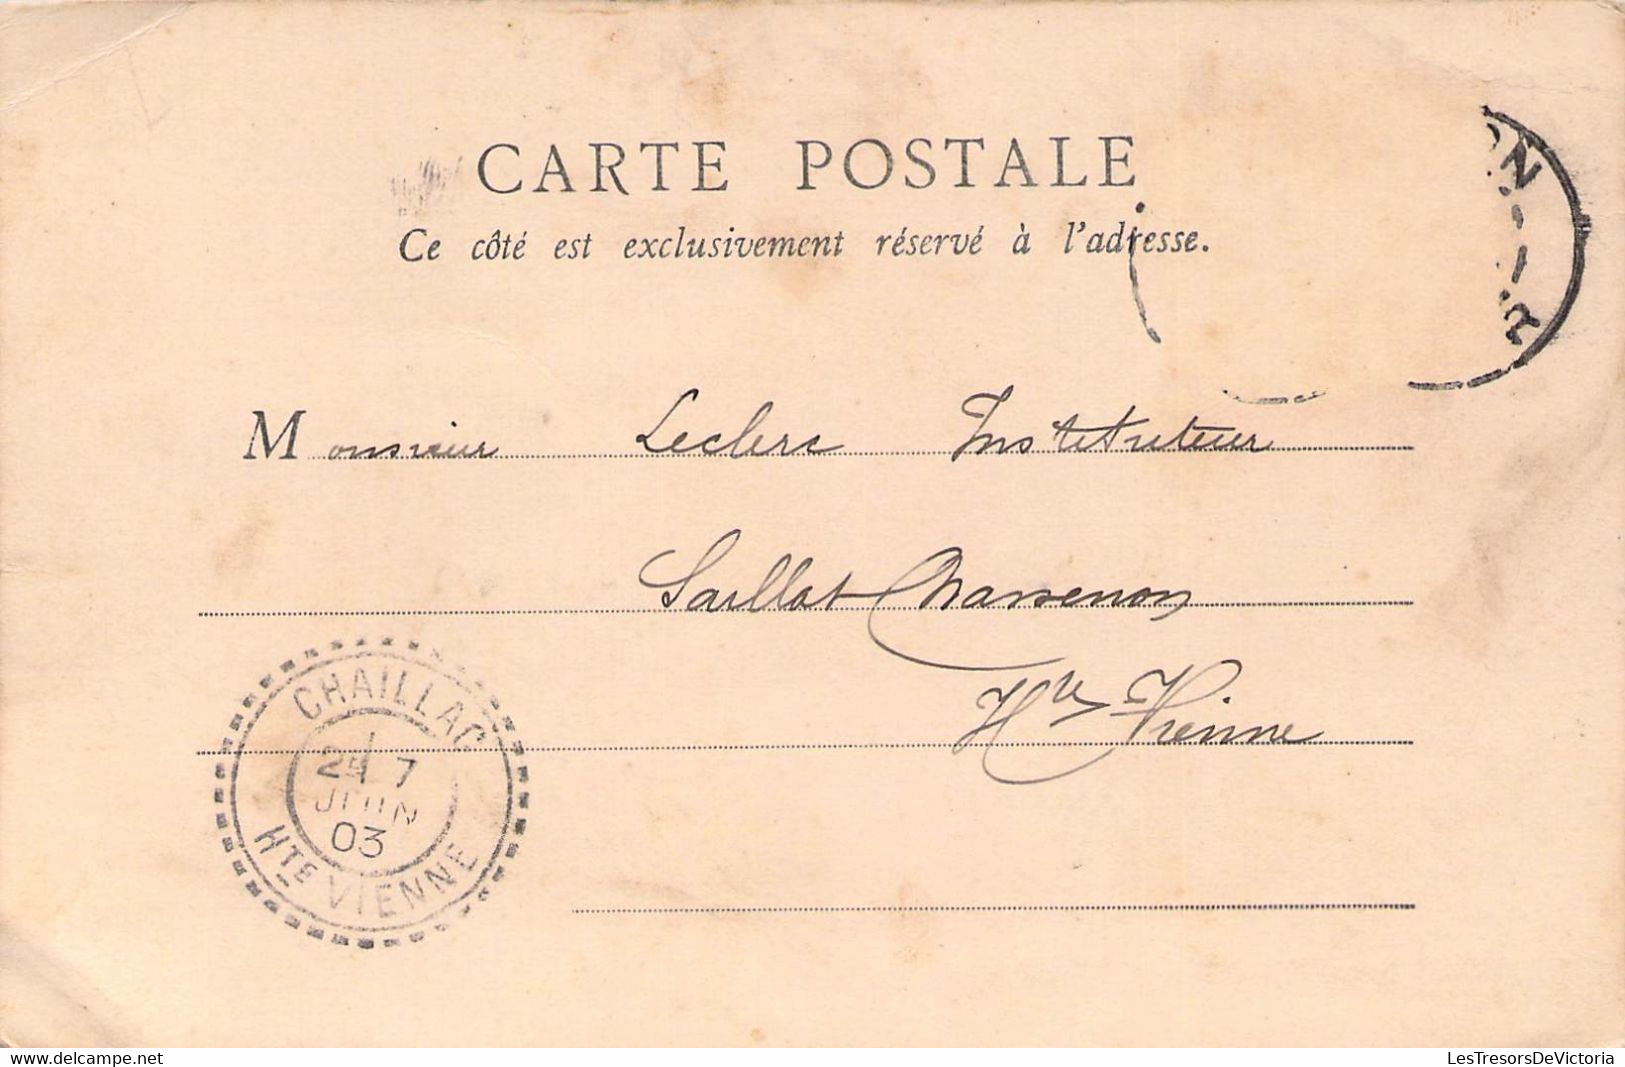 CARTE POSTALE
Ce côté est exclusivement réservé à l'adresse.
Monsieur Leclerc Instituteur
Saillat Chassenon
Hte Vienne
CHAILLAC
7
JUIN
03
HTE VIENNE
delcampe.net
LesTresorsDeVictoria